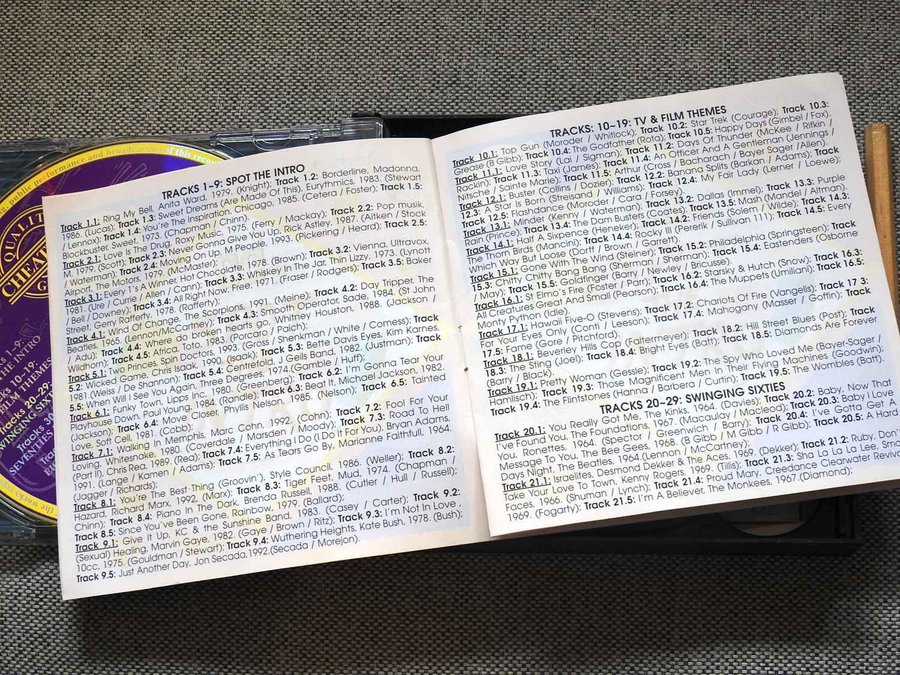 QUALITY
CHEA
TRACKS 1–9: SPOT THE INTRO
Track 1.1: Ring My Bell, Anita Ward, 1979. (Knight); Track 1.2: Borderline, Madonna,
1986. (Lucas); Track 1.3: Sweet Dreams (Are Made Of This), Eurythmics, 1983. (Stewart
/ Lennox); Track 1.4: You're The Inspiration, Chicago, 1985. (Cetera / Foster); Track 1.5:
Blockbuster, Sweet, 1973. (Chapman / Chinn).
Track 2.1: Love Is The Drug, Roxy Music, 1975. (Ferry / Mackay); Track 2.2: Pop musik,
M. 1979. (Scott); Track 2.3: Never Gonna Give You Up, Rick Astley, 1987. (Aitken / Stock
/ Waterman); Track 2.4: Moving On Up, M People, 1993. (Pickering / Heard); Track 2.5:
Airport, The Motors, 1979. (McMaster);
Track 3.1: Every 1's A Winner, Hot Chocolate, 1978. (Brown); Track 3.2: Vienna, Ultravox,
1981. (Ure / Currie / Allen / Cann); Track 3.3: Whiskey In The Jar, Thin Lizzy, 1973. (Lynott
/ Bell / Downey); Track 3.4: All Right Now, Free, 1971. (Fraser / Rodgers); Track 3.5: Baker
Street, Gerry Rafferty, 1978. (Rafferty).
Track 4.1: Wind Of Change, The Scorpions, 1991. (Meine); Track 4.2: Day Tripper, The
Beatles, 1965. (Lennon/McCartney); Track 4.3: Smooth Operator, Sade, 1984. (St John
/ Adu); Track 4.4: Where do broken hearts go, Whitney Houston, 1988. (Jackson /
Wildhorn); Track 4.5: Africa, Toto, 1983. (Porcaro / Paich);
Track 5.1: Two Princes, Spin Doctors, 1993. (Gross / Shenkman / White / Comess); Track
5.2: Wicked Game, Chris Isaak, 1990. (Isaak); Track 5.3: Bette Davis Eyes, Kim Karnes,
1981. (Weiss / De Shannon); Track 5.4: Centrefold, J Geils Band, 1982. (Justman); Track
5.5: When Will I See You Again, Three Degrees, 1974.(Gamble / Huff);
Track 6.1: Funky Town, Lipps Inc, 1980. (Greenberg); Track 6.2: I'm Gonna Tear Your
Playhouse Down, Paul Young, 1984. (Randle); Track 6.3: Beat It, Michael Jackson, 1982.
(Jackson); Track 6.4: Move Closer, Phyllis Nelson, 1985. (Nelson); Track 6.5: Tainted
Love, Soft Cell, 1981. (Cobb);
Track 7.1: Walking In Memphis, Marc Cohn, 1992. (Cohn); Track 7.2: Fool For Your
Loving, Whitesnake, 1990. (Coverdale / Marsden / Moody); Track 7.3: Road To Hell
(Part II), Chris Rea, 1989. (Rea); Track 7.4: Everything I Do (I Do It For You), Bryan Adams,
1991. (Lange / Kamen / Adams); Track 7.5: As Tears Go By, Marianne Faithfull, 1964.
(Jagger / Richards);
Track 8.1: You're The Best Thing (Groovin'), Style Council, 1986. (Weller); Track 8.2:
Hazard, Richard Marx, 1992. (Marx); Track 8.3: Tiger Feet, Mud, 1974. (Chapman /
Chinn); Track 8.4: Piano In The Dark, Brenda Russell, 1988. (Cutler / Hull / Russell);
Track 8.5: Since You've Been Gone, Rainbow, 1979. (Ballard);
Track 9.1: Give It Up, KC & the Sunshine Band, 1983. (Casey / Carter); Track 9.2:
(Sexual) Healing, Marvin Gaye, 1982. (Gaye / Brown / Ritz); Track 9.3: I'm Not In Love,
10cc, 1975. (Gouldman / Stewart); Track 9.4: Wuthering Heights, Kate Bush, 1978. (Bush);
Track 9.5: Just Another Day, Jon Secada,1992.(Secada / Morejon).
TRACKS: 10–19: TV & FILM THEMES
Track 10.1: Top Gun (Moroder / Whitlock); Track 10.2: Star Trek (Courage); Track 10.3:
Grease (B Gibb); Track 10.4: The Godfather (Rota); Track 10.5: Happy Days (Gimbel / Fox).
Track 11.1: Love Story (Lai / Sigman); Track 11.2: Days Of Thunder (McKee / Rifkin /
Rackin); Track 11.3: Taxi (James); Track 11.4: An Officer And A Gentleman (Jennings /
Nitsche / Sainte Marie); Track 11.5: Arthur (Cross / Bacharach / Bayer Sager / Allen).
Track 12.1: Buster (Collins / Dozier); Track 12.2: Banana Splits (Barkan / Adams); Track
12.3: A Star Is Born (Streisand / Williams); Track 12.4: My Fair Lady (Lerner / Loewe);
Track 12.5: Flashdance (Moroder / Cara / Forsey)
Track 13.1: Minder (Kenny / Waterman); Track 13.2: Dallas (Immel); Track 13.3: Purple
Rain (Prince); Track 13.4: The Dam Busters (Coates); Track 13.5: Mash (Mandel / Altman).
Track 14.1: Half A Sixpence (Heneker); Track 14.2: Friends (Solem / Wilde); Track 14.3:
The Thorn Birds (Mancini); Track 14.4: Rocky III (Pererik / Sullivan 111); Track 14.5: Every
Which Way But Loose (Dorff / Brown / Garrett).
Track 15.1: Gone With The Wind (Steiner); Track 15.2: Philadelphia (Springsteen); Track
15.3: Chitty, Chitty Bang Bang (Sherman / Sherman); Track 15.4: Eastenders (Osborne
/ May); Track 15.5: Goldfinger (Barry / Newley / Bricusse).
Track 16.1: St Elmo's Fire (Foster / Parr); Track 16.2: Starsky & Hutch (Snow); Track 16.3:
All Creatures Great And Small (Pearson); Track 16.4: The Muppets (Umiliani); Track 16.5:
Monty Python (Idle).
Track 17.1: Hawaii Five-O (Stevens); Track 17.2: Chariots Of Fire (Vangelis); Track 17 3:
For Your Eyes Only (Conti / Leeson); Track 17.4: Mahogany (Masser / Goffin); Track
17.5: Fame (Gore / Pitchford);
Track 18.1: Beverley Hills Cop (Faltermeyer); Track 18.2: Hill Street Blues (Post); Track
18.3: The Sting (Joel); Track 18.4: Bright Eyes (Batt); Track 18.5: Diamonds Are Forever
(Barry / Black)
Track 19.1: Pretty Woman (Gessie); Track 19.2: The Spy Who Loved Me (Bayer-Sager /
Hamlisch); Track 19.3: Those Magnificent Men In Their Flying Machines (Goodwin);
Track 19.4: The Flintstones (Hanna / Barbera / Curtin); Track 19.5: The Wombles (Batt).
TRACKS 20–29: SWINGING SIXTIES
Track 20.1: You Really Got Me, The Kinks, 1964. (Davies); Track 20.2: Baby, Now That
I've Found You, The Foundations, 1967. (Macaulay / Macleod); Track 20.3: Baby I Love
You, Ronettes, 1964. (Spector / Greenwich / Barry); Track 20.4: I've Gotta Get A
Message To You, The Bee Gees, 1968. (B Gibb / M Gibb / R Gibb); Track 20.5: A Hard
Day's Night, The Beatles, 1964.(Lennon / McCartney);
Track 21.1: Israelites, Desmond Dekker & The Aces, 1969. (Dekker); Track 21.2: Ruby, Don't
Take Your Love To Town, Kenny Rogers, 1969. (Tillis); Track 21.3: Sha La La La Lee, Small
Faces, 1966. (Shuman / Lynch); Track 21.4: Proud Mary, Creedance Clearwater Reviv
1969. (Fogarty); Track 21.5: I'm A Believer, The Monkees, 1967 (Diamond);